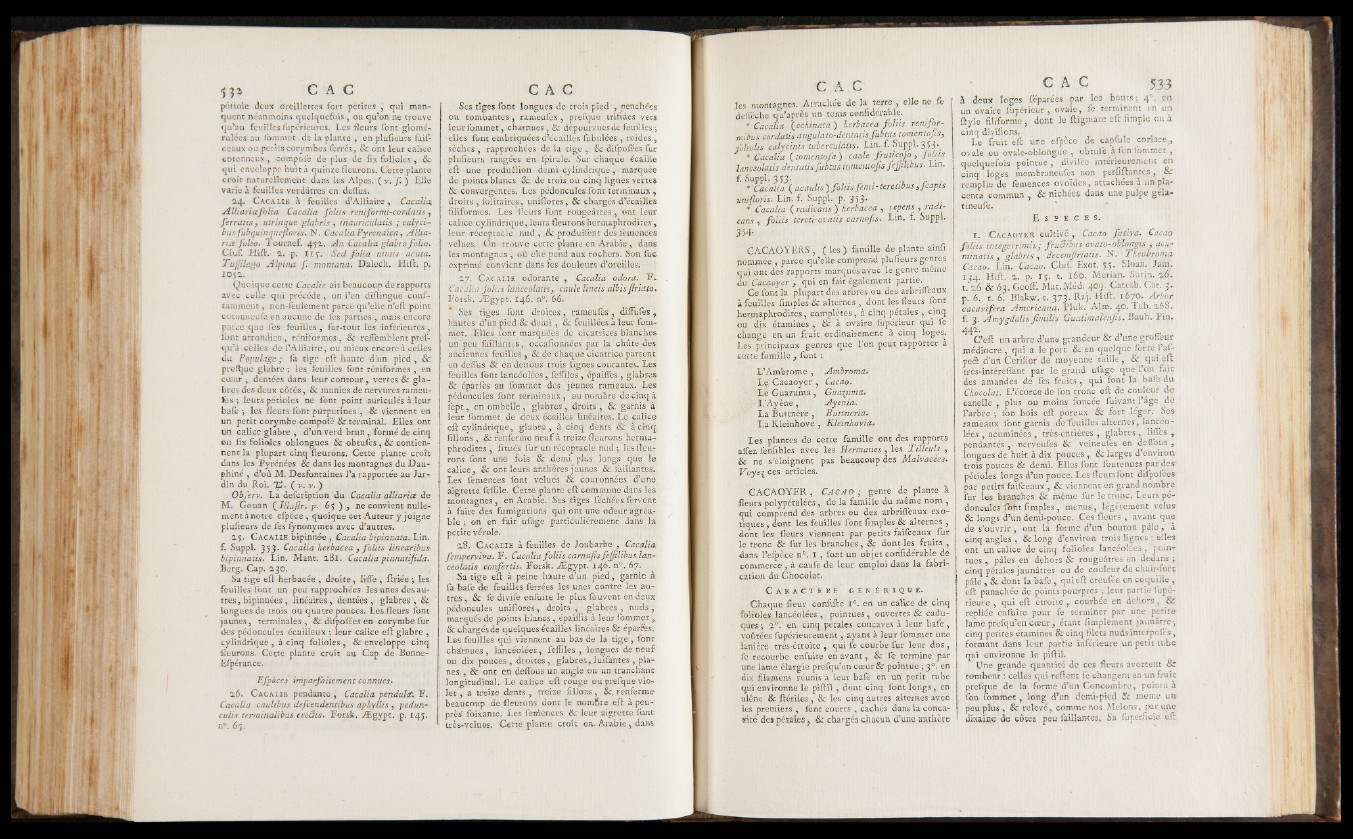 532 C A C
pétiole deux oreillettes fort petites , qui man-
quent néanmoins quelquefois , ou qu'on ne trouve
qu'au feuilles supérieures. Les fleurs sont glomé-
rulées au sommet de la plante , en plusieurs fais-
ceaux ou petits corymbes serrés, & ont leur calice
cotonneux , composé de plus de six folioles , &
qui enveloppe huit à quinze fleurons. Cette plante
croît naturellement dans les Alpes. ( v. ſ. ) Elle
varie à feuilles verdâtres en dessus.
24. CACALIE à feuilles d'Alliaire , Cacalia
Alliariæfolia. Cacalia foliis reniformi-cordatis ,
serratis , utrinque glabris , inauriculatis ; calyci-
bus subquinquefloris. N. Cacalia Pyrenaica , Allia-
riæ folio. Tournef. 452. An Cacalia glabro folio.
Cluf. Hist. 2. p. 115. Sed folia nimis acuta.
Tussilago Alpina s. montana. Dalech. Hist. p.
1052.
Quoique cette Cacalie ait beaucoup de rapports
avec celle qui précéde , on l'en distingue cons-
tamment , non-seulement parce qu'elle n'est point
cotonneuse en aucune de ses parties , mais encore
parce que ses feuilles , sur-tout les inférieures ,
sont arrondies , réniformes , & ressemblent pres-
qu'à celles de l'Alliaire, ou mieux encore à celles
du Populage ; sa tige est haute d'un pied , &
presque glabre ; les feuilles sont réniformes , en
cœur , dentées dans leur contour , vertes & gla-
bres des deux côtés , & munies de nervures rameu-
ses ; leurs pétioles ne sont point auriculés à leur
base ; les fleurs sont purpurines , & viennent en
un petit corymbe composé & terminal. Elles ont
un calice glabre , d'un verd brun , formé de cinq
ou six folioles oblongues & obtuses, & contien-
nent la plupart cinq fleurons. Cette plante croît
dans les Pyrénées & dans les montagnes du Dau-
phiné , d'où M. Desfontaines l'a rapportée au Jar-
din du Roi. ♃. ( v. v. )
Observ. La description du Cacalia alliariæ de
M. Gouan ( Illustr. p. 65 ) , ne convient nulle-
ment à notre espèce , quoique cet Auteur y joigne
plusieurs de ses synonymes avec d'autres.
25. CACALIE bipinnée , Cacalia bipinnata. Lin.
f. Suppl. 353. Cacalia herbacea , foliis linearibus
bipinnatis. Lin. Mant. 281. Cacalia pinnatifida.
Berg. Cap. 230.
Sa tige est herbacée , droite , lisse , striée ; les
feuilles sont un peu rapprochées les unes des au-
tres, bipinnées , linéaires , dentées , glabres , &
longues de trois ou quatre pouces. Les fleurs sont
jaunes, terminales , & disposées en corymbe sur
des pédoncules écailleux ; leur calice est glabre ,
cylindrique , à cinq folioles , & enveloppe cinq
fleurons. Cette plante croît au Cap de Bonne-
Espérance.
Espèces imparfaitement connues.
26. CACALIE pendante , Cacalia pendula. F.
Cacalia caulibus descendentibus aphyllis , pedun-
culis terminalibus erectis. Forsk. Ægypt. p. 145.
n°. 65.
C A C
Ses tiges sont longues de trois pied , penchées
ou tombantes , rameuses , presque trifides vers
leur sommet , charnues , & dépourvues de feuilles ;
elles sont embriquées d'écailles subulées , roides ,
sèches , rapprochées de la tige , & disposées sur
plusieurs rangées en spirale. Sur chaque écaille
est une production demi-cylindrique , marquée
de points blancs & de trois ou cinq lignes vertes
& convergentes. Les pédoncules sont terminaux ,
droits , solitaires , uniflores , & chargés d'écailles
filiformes. Les fleurs sont rougeâtres , ont leur
calice cylindrique, leurs fleurons hermaphrodites ,
leur réceptacle nud , & produisent des semences
velues. On trouve cette plante en Arabie , dans
les montagnes , où elle pend aux rochers. Son suc
exprimé convient dans les douleurs d'oreilles.
27. CACALIE odorante , Cacalia odora. F.
Cacalia foliis lanceolatis , caule lineis albis striato.
Forsk. Ægypt. 146. n°. 66.
Ses tiges sont droites , rameuses , diffuses ,
hautes d'un pied & demi , & feuillées à leur som-
met. Elles sont marquées de cicatrices blanches
un peu saillantes , occasionnées par la chûte des
anciennes feuilles , & de chaque cicatrice partent
en dessus & en dessous trois lignes courantes. Les
feuilles sont lancéolées , sessiles , épaisses , glabres
& éparses au sommet des jeunes rameaux. Les
pédoncules sont terminaux , au nombre de cinq à
sept , en ombelle , glabres , droits , & garnis à
leur sommet de deux écailles linéaires. Le calice
est cylindrique, glabre , à cinq dents & à cinq
sillons , & renferme neuf à treize fleurons herma-
phrodites , situés sur un réceptacle nud ; les fleu-
rons sont une fois & demi plus longs que le
calice , & ont leurs anthères jaunes & saillantes.
Les semences sont velues & couronnées d'une
aigrette sessile. Cette plante est commune dans les
montagnes , en Arabie. Ses tiges séchées servent
à faire des fumigations qui ont une odeur agréa-
ble ; on en fait usage particulièrement dans la
petite vérole.
28. CACALIE à feuilles de Joubarbe , Cacalia
semperviva. F. Cacalia foliis carnosis sessilibus lan-
ceolatis confertis. Forsk. Ægypt. 146. n°. 67.
Sa tige est à peine haute d'un pied , garnie à
sa base de feuilles serrées les unes contre les au-
tres , & se divise ensuite le plus souvent en deux
pédoncules uniflores , droits , glabres , nuds ,
marqués de points blancs , épaissis à leur sommet ,
& chargés de quelques écailles linéaires & éparses.
Les feuilles qui viennent au bas de la tige , sont
charnues , lancéolées , sessiles , longues de neuf
ou dix pouces , droites , glabres, luisantes , pla-
nes , & ont en dessous un angle ou un tranchant
longitudinal. Le calice est rouge ou presque vio-
let , a treize dents , treize sillons , & renferme
beaucoup de fleurons dont le nombre est à peu-
près soixante. Les semences & leur aigrette sont
très-velues. Cette plante croît en Arabie , dans
C A C
les montagnes. Arrachée de la terre , elle ne se
dessèche qu'après un tems considérable.
* Cacalia ( echinata ) herbacea foliis renifor-
mibus cordatis angulato-dentatis subtus tomentosis ,
foliolis calycinis tuberculatis. Lin. f. Suppl. 353.
* Cacalia ( tomentosa ) caule fruticoso , foliis
lanceolatis dentatis subtus tomentosis sessilibus. Lin.
f. Suppl. 353.
* Cacalia ( acaulis ) foliis semi-teretibus , scapis
unifloris. Lin. f. Suppl. p. 353.
* Cacalia ( radicans ) herbacea , repens , radi-
cans , foliis tereti-ovatis carnosis. Lin. f. Suppl.
354.
CACAOYERS , ( les ) famille de plante ainsi
nommée , parce qu'elle comprend plusieurs genres
qui ont des rapports marqués avec le genre même
du Cacaoyer , qui en fait également partie.
Ce sont la plupart des arbres ou des arbrisseaux
à feuilles simples & alternes , dont les fleurs sont
hermaphrodites , complètes , à cinq pétales , cinq
ou dix étamines , & à ovaire supérieur qui se
change en un fruit ordinairement à cinq loges.
Les principaux genres que l'on peut rapporter à
cette famille , sont :
L'Ambrome , Ambroma.
Le Cacaoyer , Cacao.
Le Guazuma , Guazuma.
L'Ayène , Ayenia.
La Buttnère , Buttneria.
La Kleinhove , Kleinhovia.
Les plantes de cette famille ont des rapports
assez sensibles avec les Hermanes , les Tilleuls ,
& ne s'éloignent pas beaucoup des Malvacées.
Voyez ces articles.
CACAOYER , CACAO ; genre de plante à
fleurs polypétalées , de la famille du même nom ,
qui comprend des arbres ou des arbrisseaux exo-
tiques , dont les feuilles sont simples & alternes ,
dont les fleurs viennent par petits faisceaux sur
le tronc & sur les branches , & dont les fruits ,
dans l'espèce n°. 1 , sont un objet considérable de
commerce , à cause de leur emploi dans la fabri-
cation du Chocolat.
CARACTERE GÉNÉRIQUE.
Chaque fleur consiste 1°. en un calice de cinq
folioles lancéolées , pointues , ouvertes & cadu-
ques ; 2°. en cinq pétales concaves à leur base ,
voûtées supérieurement , ayant à leur sommet une
lanière très-étroite , qui se courbe sur leur dos ,
se recourbe ensuite en avant , & se termine par
une lame élargie presqu'en cœur & pointue ; 3°. en
dix filamens réunis à leur base en un petit tube
qui environne le pistil , dont cinq sont longs , en
alêne & stériles , & les cinq autres alternes avec
les premiers , sont courts , cachés dans la conca-
vité des pétales , & chargés chacun d'une anthère
C A C 533
à deux loges séparées par les bouts ; 4°. en
un ovaire supérieur , ovale , se terminant en un
style filiforme , dont le stigmate est simple ou à
cinq divisions.
Le fruit est une espèce de capsule coriace ,
ovale ou ovale-oblongue , obtuse à son sommet ,
quelquefois pointue , divisée intérieurement en
cinq loges membraneuses non persistantes , &
remplie de semences ovoïdes , attachées à un pla-
centa commun , & nichées dans une pulpe géla-
tineuse.
ESPECES.
1. CACAOYER cultivé , Cacao sativa. Cacao
foliis integerrimis ; fructibus ovato-oblongis , acu-
minatis , glabris , decemstriatis. N. Theobroma
Cacao. Lin. Cacao. Cluf. Exot. 55. Sloan. Jam.
134. Hist. 2. p. 15. t. 160. Merian. Surin. 26.
t. 26 & 63. Geoff. Mat. Méd. 409. Catesb. Car. 3.
p. 6. t. 6. Blakw. t. 373. Raj. Hist. 1670. Arbor
cacavifera Americana. Pluk. Alm. 40. Tab. 268.
f. 3. Amygdalis similis Guatimalensis. Bauh. Pin.
442.
C'est un arbre d'une grandeur & d'une grosseur
médiocre , qui a le port & en quelque sorte l'as-
pect d'un Cerisier de moyenne taille , & qui est
très-intéressant par le grand usage que l'on fait
des amandes de ses fruits , qui sont la base du
Chocolat. L'écorce de son tronc est de couleur de
canelle , plus ou moins foncée suivant l'âge de
l'arbre ; son bois est poreux & fort léger. Ses
rameaux sont garnis de feuilles alternes , lancéo-
lées , acuminées , très-entières , glabres , lisses ,
pendantes , nerveuses & veineuses en dessous ,
longues de huit à dix pouces , & larges d'environ
trois pouces & demi. Elles sont soutenues par des
pétioles longs d'un pouce. Les fleurs sont disposées
par petits faisceaux , & viennent en grand nombre
sur les branches & même sur le tronc. Leurs pé-
doncules sont simples , menus , légérement velus
& longs d'un demi-pouce. Ces fleurs , avant que
de s'ouvrir , ont la forme d'un bouton pâle , à
cinq angles , & long d'environ trois lignes : elles
ont un calice de cinq folioles lancéolées , poin-
tues , pâles en dehors & rougeâtres en dedans ;
cinq pétales jaunâtres ou de couleur de chair fort
pâle , & dont la base , qui est creusée en coquille ,
est panachée de points pourpres ; leur partie supé-
rieure , qui est étroite , courbée en dehors , &
repliée ensuite pour se terminer par une petite
lame presqu'en cœur , étant simplement jaunâtre ;
cinq petites étamines & cinq filets nuds interposés ,
formant dans leur partie inférieure un petit tube
qui environne le pistil.
Une grande quantité de ces fleurs avortent &
tombent : celles qui restent se changent en un fruit
presque de la forme d'un Concombre , pointu à
son sommet , long d'un demi-pied & même un
peu plus , & relevé , comme nos Melons , par une
dixaine de côtes peu saillantes. Sa superficie est